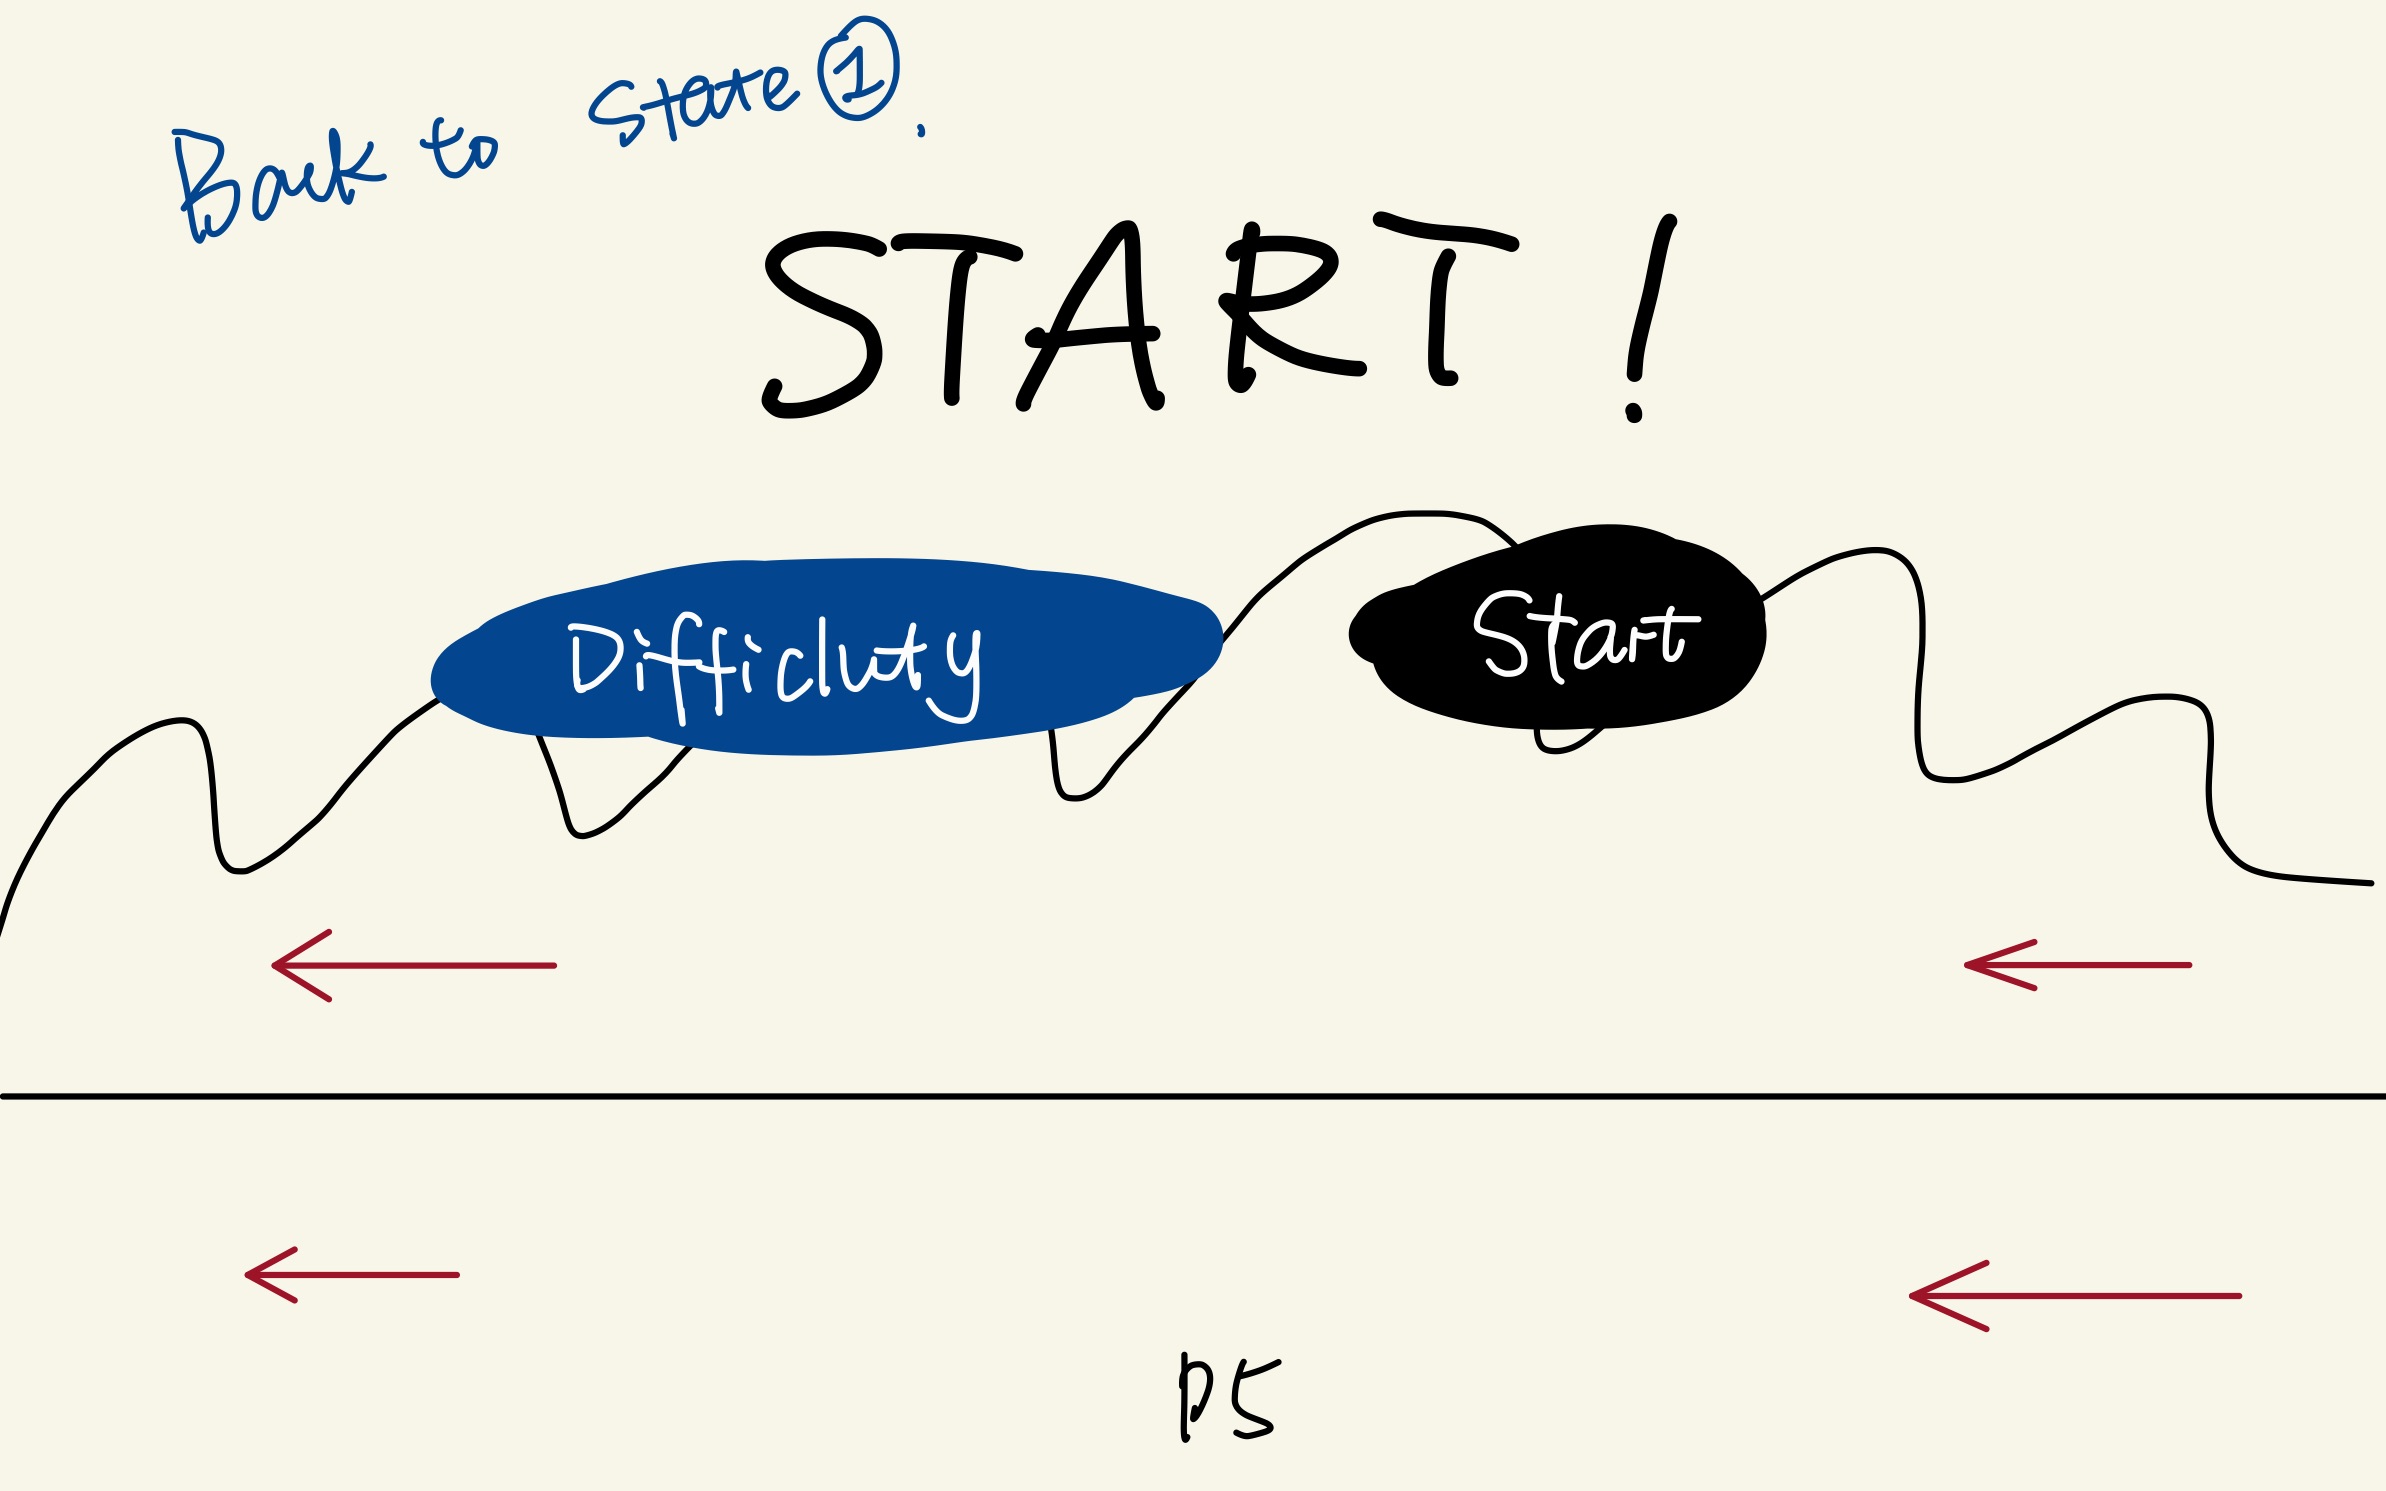 Back to state ①.
START!
Difficluty
Start
P5